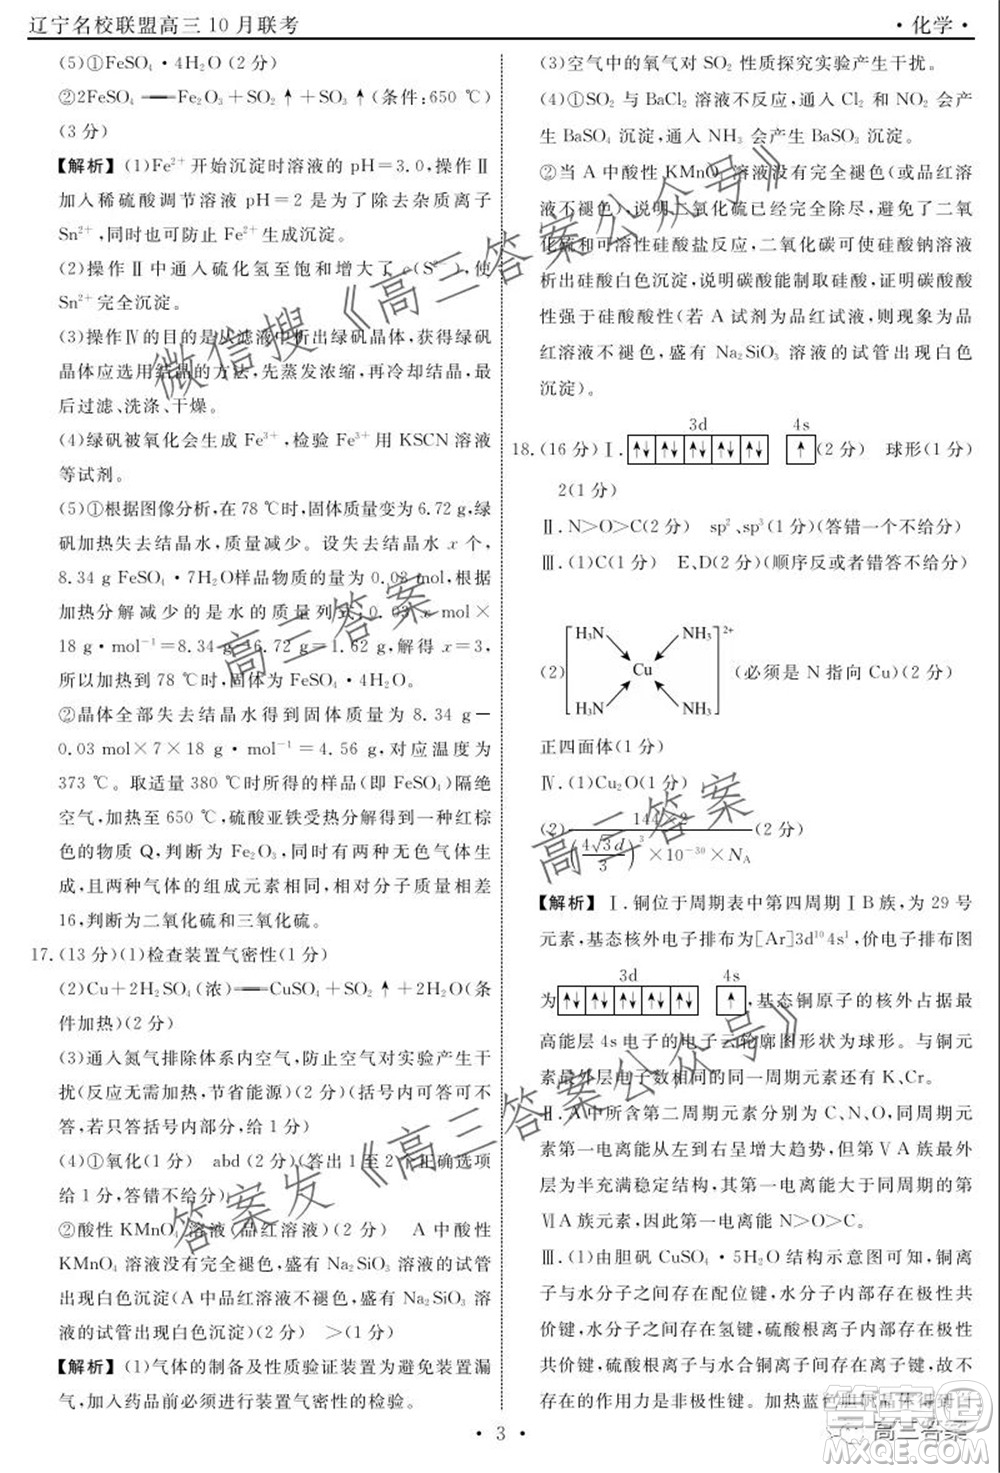 辽宁名校联盟高三10月联考
·化学·
(5)①FeSO₄·4H₂O(2分)
②2FeSO₄══Fe₂O₃+SO₂↑+SO₃↑(条件:650 ℃)
(3分)
【解析】(1)Fe²⁺开始沉淀时溶液的pH=3.0,操作Ⅱ
加入稀硫酸调节溶液pH=2是为了除去杂质离子
Sn²⁺,同时也可防止Fe²⁺生成沉淀。
(2)操作Ⅱ中通入硫化氢至饱和增大了c(S²⁻),使
Sn²⁺完全沉淀。
(3)操作Ⅳ的目的是从滤液中析出绿矾晶体,获得绿矾
晶体应选用结晶的方法,先蒸发浓缩,再降温结晶,最
后过滤、洗涤、干燥。
(4)绿矾被氧化会生成Fe³⁺,检验Fe³⁺用KSCN溶液
等试剂。
(5)①根据图像分析,在78 ℃时,固体质量为6.72 g,绿
矾加热失去结晶水,质量减少。设失去结晶水x个,
8.34 g FeSO₄·7H₂O样品物质的量为0.03 mol,根据
加热分解减少的是水的质量列式:0.03 x mol×
18 g·mol⁻¹=8.34 g-6.72 g=1.62 g,解得x=3,
所以加热到78 ℃时,固体为FeSO₄·4H₂O。
②晶体全部失去结晶水得到固体质量为8.34 g-
0.03 mol×7×18 g·mol⁻¹=4.56 g,对应温度为
373 ℃。取适量380 ℃时所得的样品(即FeSO₄)隔绝
空气,加热至650 ℃,硫酸亚铁受热分解为一种红棕
色的物质Q,判断为Fe₂O₃,同时有两种无色气体生
成,两种气体的组成元素相同,相对分子质量相差
16,判断为二氧化硫和三氧化硫。
17.(13分)(1)检查装置气密性(1分)
(2)Cu+2H₂SO₄(浓)══CuSO₄+SO₂↑+2H₂O(条
件加热)(2分)
(3)通入氮气排除体系内空气,防止空气对实验产生干
扰(反应无需加热,节省能源)(2分)(括号内可答可不
答,若只答括号内部分,给1分)
(4)①氧化(1分) abd(2分)(答出1至2个正确选项
给1分,答错不给分)
②酸性KMnO₄溶液(品红溶液)(2分) A中酸性
KMnO₄溶液没有完全褪色,盛有Na₂SiO₃溶液的试管
出现白色沉淀(A中品红溶液不褪色,盛有Na₂SiO₃溶
液的试管出现白色沉淀)(2分) >(1分)
【解析】(1)气体的制备及性质验证装置为避免装置漏
气,加入药品前必须进行装置气密性的检验。
(3)空气中的氧气对SO₂性质探究实验产生干扰。
(4)①SO₂与BaCl₂溶液不反应,通入Cl₂和NO₂会产
生BaSO₄沉淀,通入NH₃会产生BaSO₃沉淀。
②当A中酸性KMnO₄溶液没有完全褪色(或品红溶
液不褪色),说明二氧化硫已经完全除尽,避免了二氧
化硫和可溶性硅酸盐反应,二氧化碳可使硅酸钠溶液
析出硅酸白色沉淀,说明碳酸能制取硅酸,证明碳酸酸
性强于硅酸酸性(若A试剂为品红试液,则现象为品
红溶液不褪色,盛有Na₂SiO₃溶液的试管出现白色
沉淀)。
3d 4s
18.(16分)Ⅰ. ↑↓ ↑↓ ↑↓ ↑↓ ↑↓ ↑ (2分) 球形(1分)
2(1分)
Ⅱ.N>O>C(2分) sp²、sp³(1分)(答错一个不给分)
Ⅲ.(1)C(1分) E、D(2分)(顺序反或者错答不给分)
(2)[H₃N NH₃ Cu H₃N NH₃]²⁺(必须是N指向Cu)(2分)
正四面体(1分)
Ⅳ.(1)Cu₂O(1分)
(2) 144×2 / (4√3d/3)³×10⁻³⁰×N_A (2分)
【解析】Ⅰ.铜位于周期表中第四周期ⅠB族,为29号
元素,基态核外电子排布为[Ar]3d¹⁰4s¹,价电子排布图
3d 4s
为 ↑↓ ↑↓ ↑↓ ↑↓ ↑↓ ↑ ,基态铜原子的核外占据最
高能层4s电子的电子云轮廓图形状为球形。与铜元
素最外层电子数相同的同一周期元素还有K、Cr。
Ⅱ.A中所含第二周期元素分别为C、N、O,同周期元
素第一电离能从左到右呈增大趋势,但第ⅤA族元素
因为半充满稳定结构,第一电离能大于同周期的第
ⅥA族元素,因此第一电离能N>O>C。
Ⅲ.(1)由胆矾CuSO₄·5H₂O结构示意图可知,铜离
子与水分子间存在配位键,水分子内部存在极性共价
键,水分子之间存在氢键,硫酸根离子内部存在极性
共价键,硫酸根离子与水合铜离子间存在离子键,故不
存在的作用力是非极性键。加热蓝色胆矾晶体得白
·3·
微信搜《高三答案公众号》
高三答案
高三答案
答案发《高三答案公众号》
高三答案
答案圈
MXQE.COM